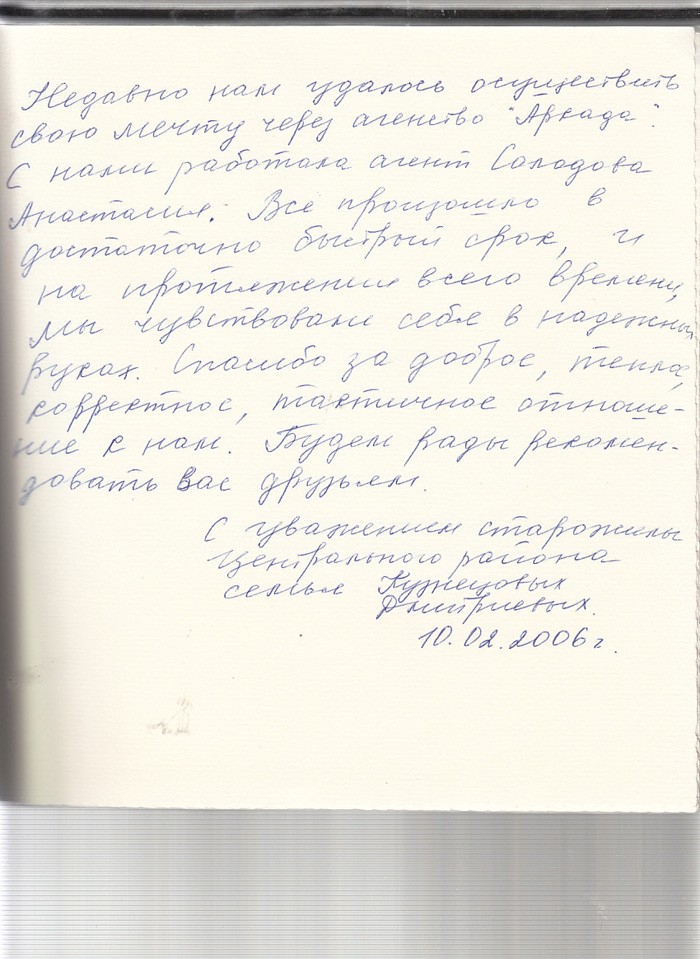 Недавно нам удалось осуществить
свою мечту через агенство "Аркада".
С нами работала агент Солодова
Анастасия. Все произошло в
достаточно быстрый срок, и
на протяжении всего времени,
мы чувствовали себя в надежных
руках. Спасибо за доброе, теплое,
корректное, тактичное отноше-
ние к нам. Будем рады рекомен-
довать Вас друзьям.
С уважением старожилы
Центрального района
семья Кузнецовых
Дмитриевых.
10.02.2006 г.